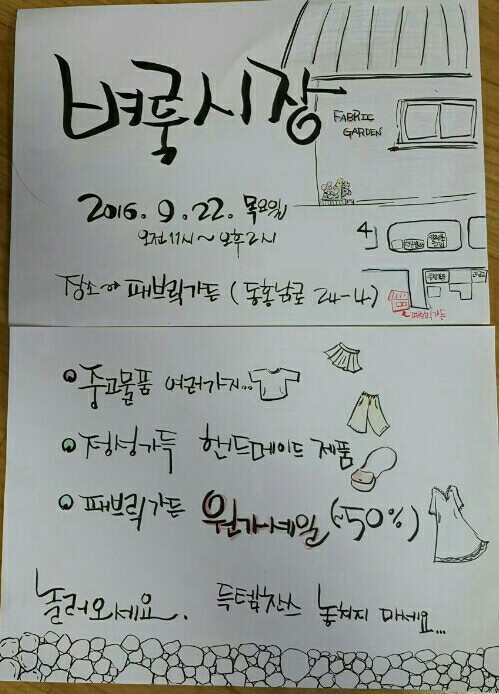 벼룩시장
FABRIC
GARDEN
2016. 9. 22. 목요일
오전 11시 ~ 오후 2시
4
장소 패브릭가든 (동홍남로 24-4)
패브릭가든
중고물품 여러가지..
정성가득 핸드메이드 제품
패브릭가든 원가세일 (~50%)
놀러오세요. 득템찬스 놓쳐지 마세요...